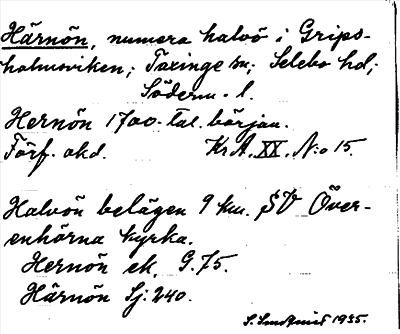 Härnön, numera halvö i Grips-
holmsviken; Taxinge sn; Selebo hd;
Söderm. l.
Hernön 1700-tal. början.
Förf. okd. Kr A. XX. N:o 15.
Halvön belägen 9 km. SV Över-
enhörna kyrka.
Hernön ek. G. 75.
Härnön Sj: 240.
1935.